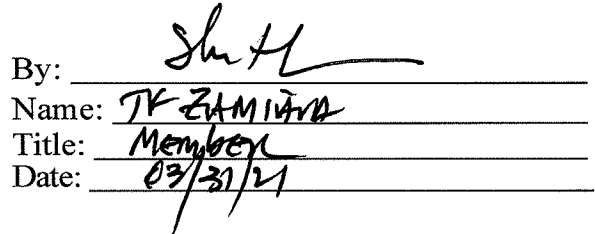 By:
Name: TK
Title: Member
Date: 03/31/21